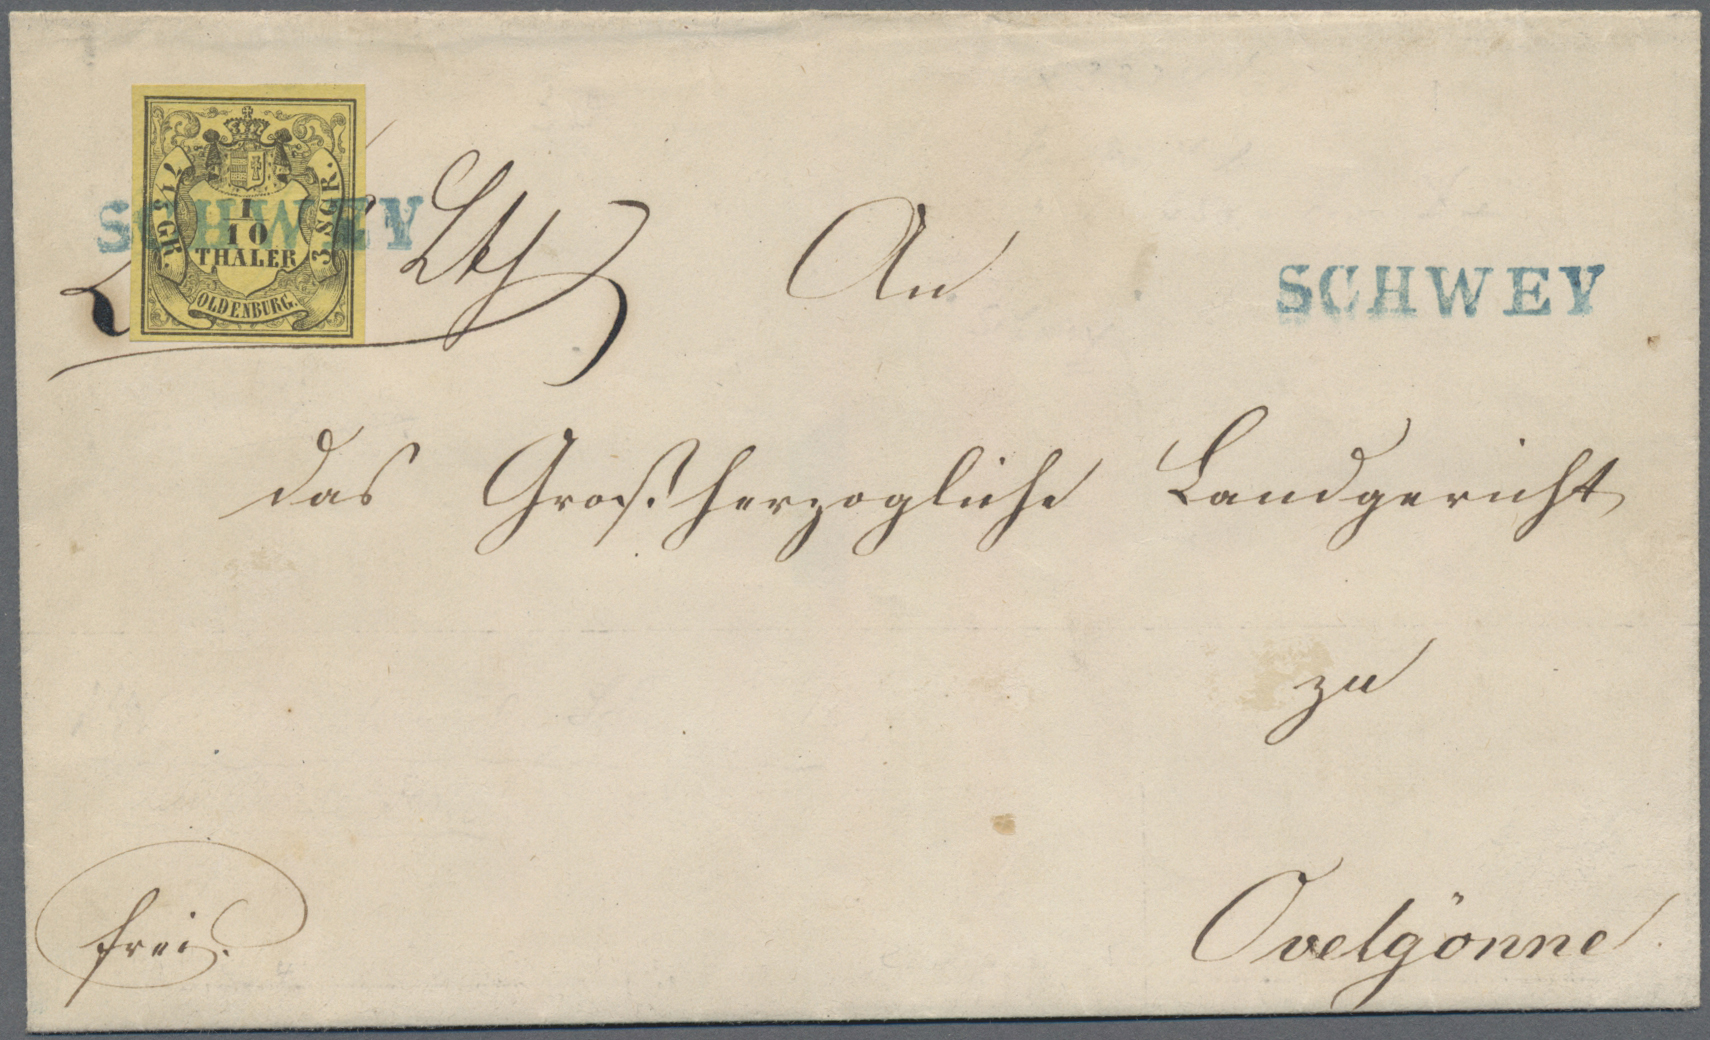 SCHWEY
7 1/5 GR.
1
10
THALER
3 SGR.
OLDENBURG.
Lth
An
SCHWEY
das Großherzogliche Landgericht
zu
Ovelgönne
frei.